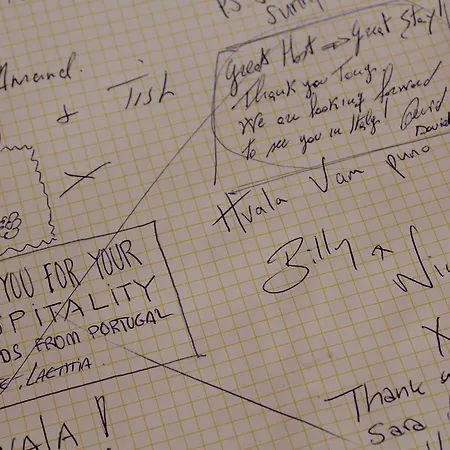 PS.
sunny
Great Host => Great Stay!!
Thank you Tony.
We are looking forward
to see you in Italy!
David
Amand.
+ Tish
X
Hvala Vam puno
Billy +
YOU FOR YOUR
SPITALITY
DS FROM PORTUGAL
LAETITIA.
VALA!
X
Thank
Sara